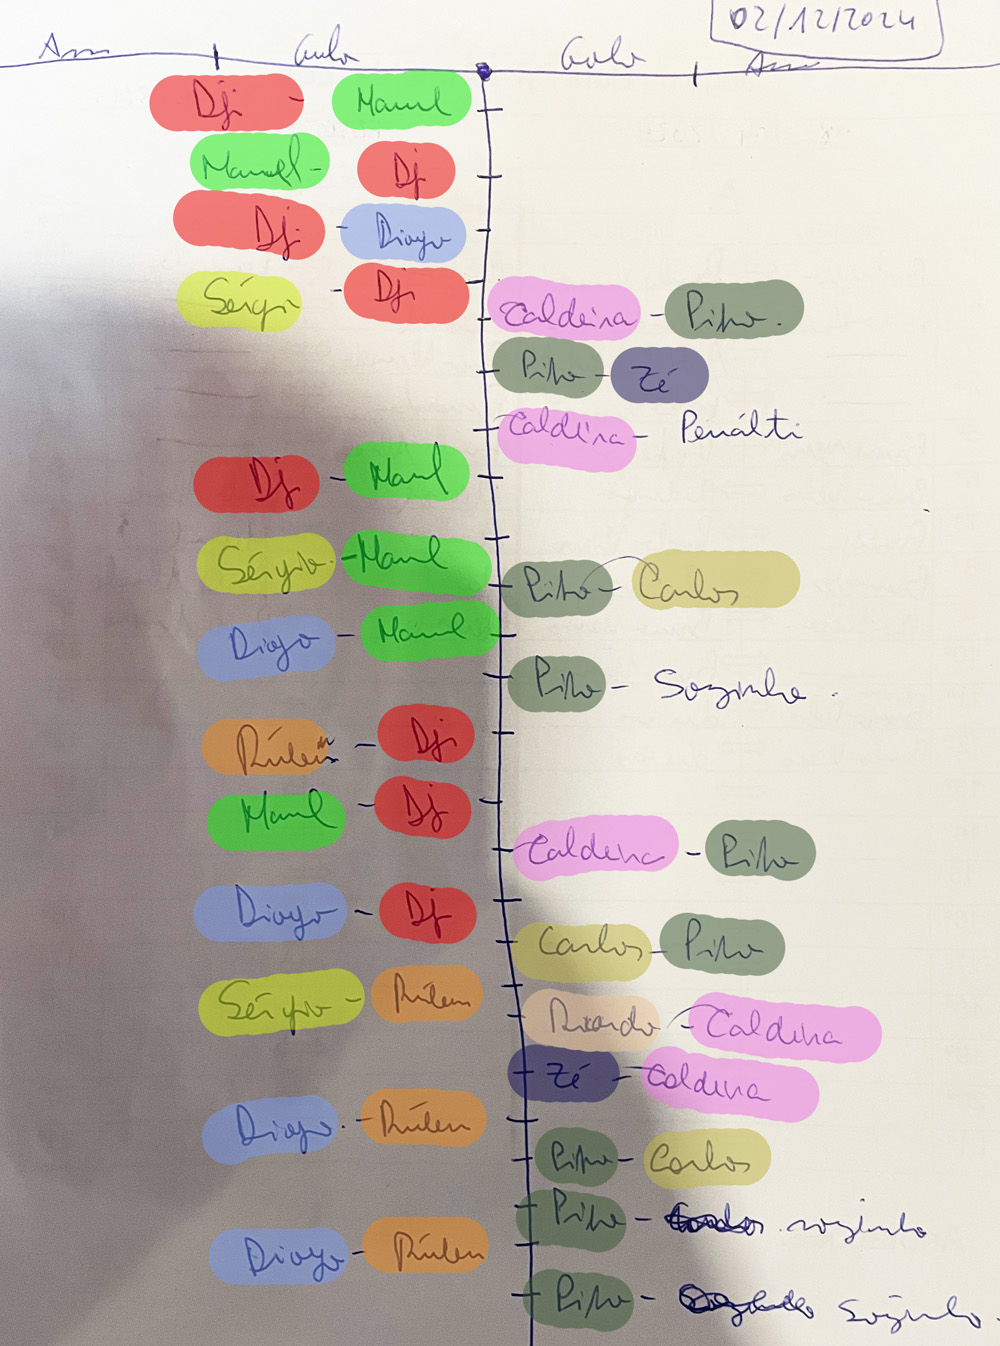 02/12/2024
Ass Golo Golo Ass
Dj - Manel
Manel - Dj
Dj - Diogo
Sérgi - Dj
Caldeira - Pipo.
Pipo - Zé
Caldeira - Penálti
Dj - Manel
Sérgio - Manel
Pipo - Carlos
Diogo - Manel
Pipo - Sozinho.
Rúben - Dj
Manel - Dj
Caldeira - Pipo
Diogo - Dj
Carlos - Pipo
Sérgio - Rúben
Ricardo - Caldeira
Zé - Caldeira
Diogo - Rúben
Pipo - Carlos
Pipo - sozinho
Diogo - Rúben
Pipo - Sozinho.